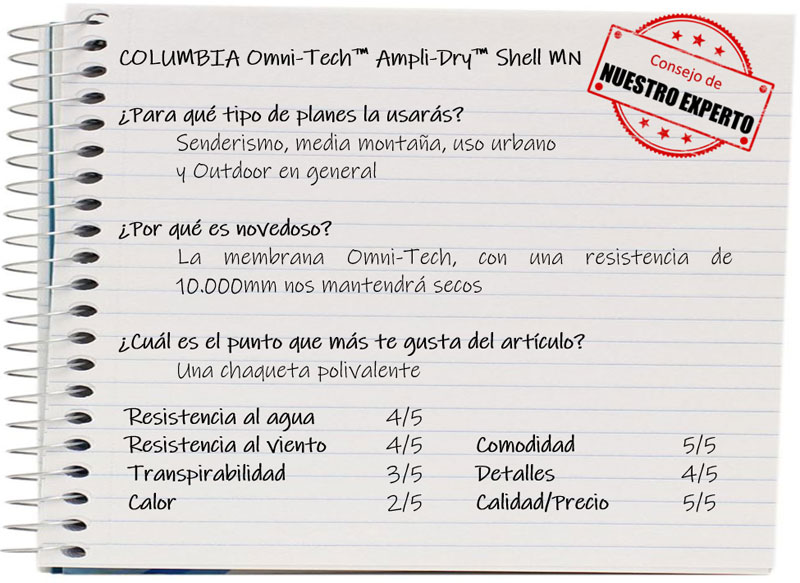 COLUMBIA Omni-Tech™ Ampli-Dry™ Shell MN
Consejo de
NUESTRO EXPERTO
¿Para qué tipo de planes la usarás?
Senderismo, media montaña, uso urbano
y Outdoor en general
¿Por qué es novedoso?
La membrana Omni-Tech, con una resistencia de
10.000mm nos mantendrá secos
¿Cuál es el punto que más te gusta del artículo?
Una chaqueta polivalente
Resistencia al agua 4/5
Resistencia al viento 4/5 Comodidad 5/5
Transpirabilidad 3/5 Detalles 4/5
Calor 2/5 Calidad/Precio 5/5